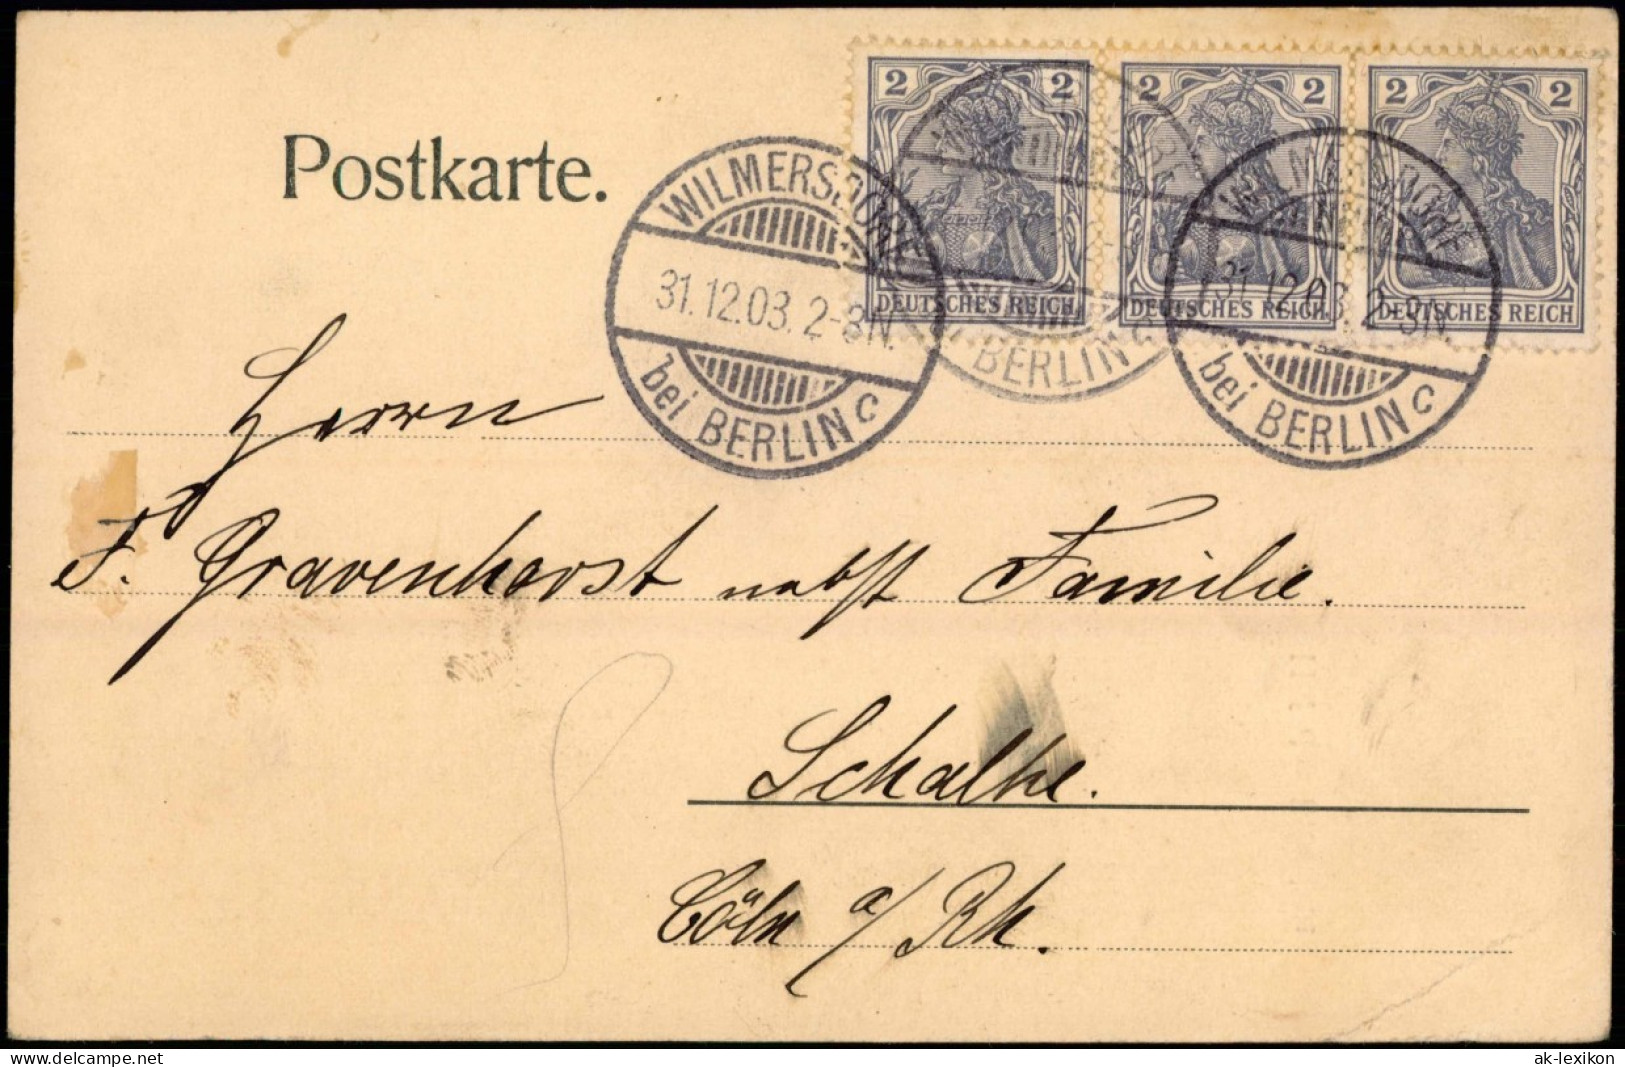 Postkarte.
2 2 2 2 2 2
DEUTSCHES REICH DEUTSCHES REICH DEUTSCHES REICH
WILMERSDORF
31.12.03. 2-3N.
bei BERLIN C
BERLIN C
WILMERSDORF
31.12.03. 2-3N.
bei BERLIN C
Herrn
F. Gravenhorst nebst Familie.
Schalke.
Cöln a/Rh.
www.delcampe.net
ak-lexikon